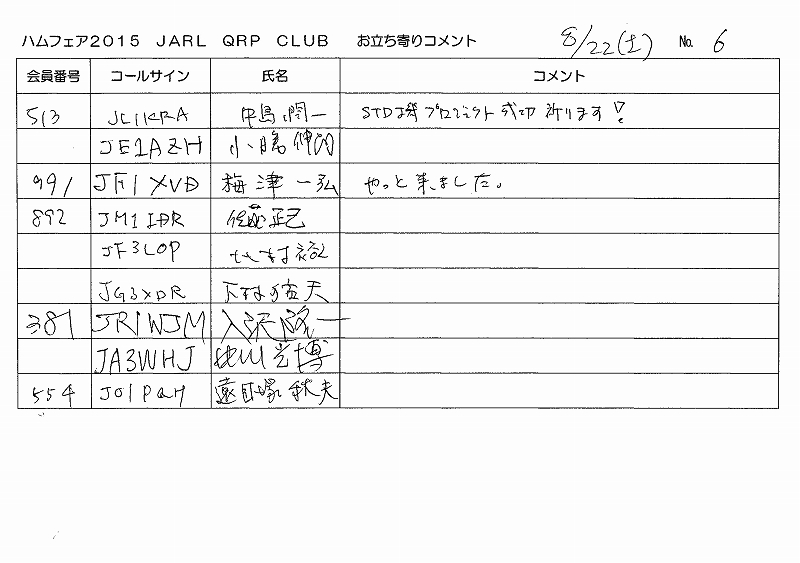 ハムフェア2015 JARL QRP CLUB お立ち寄りコメント 8/22(土) No. 6
会員番号 コールサイン 氏名 コメント
513 JL1KRA 中島潤一 STD機プロジェクト成功祈ります!
JE1AZH 小嶋伸
991 JF1XVD 梅津一弘 やっと来ました。
892 JM1IDR 正己
JF3LOP 村
JG3XDR 下村 天
387 JR1WJM 入沢 一
JA3WHJ 光博
554 JO1PQH 遠目塚秋夫